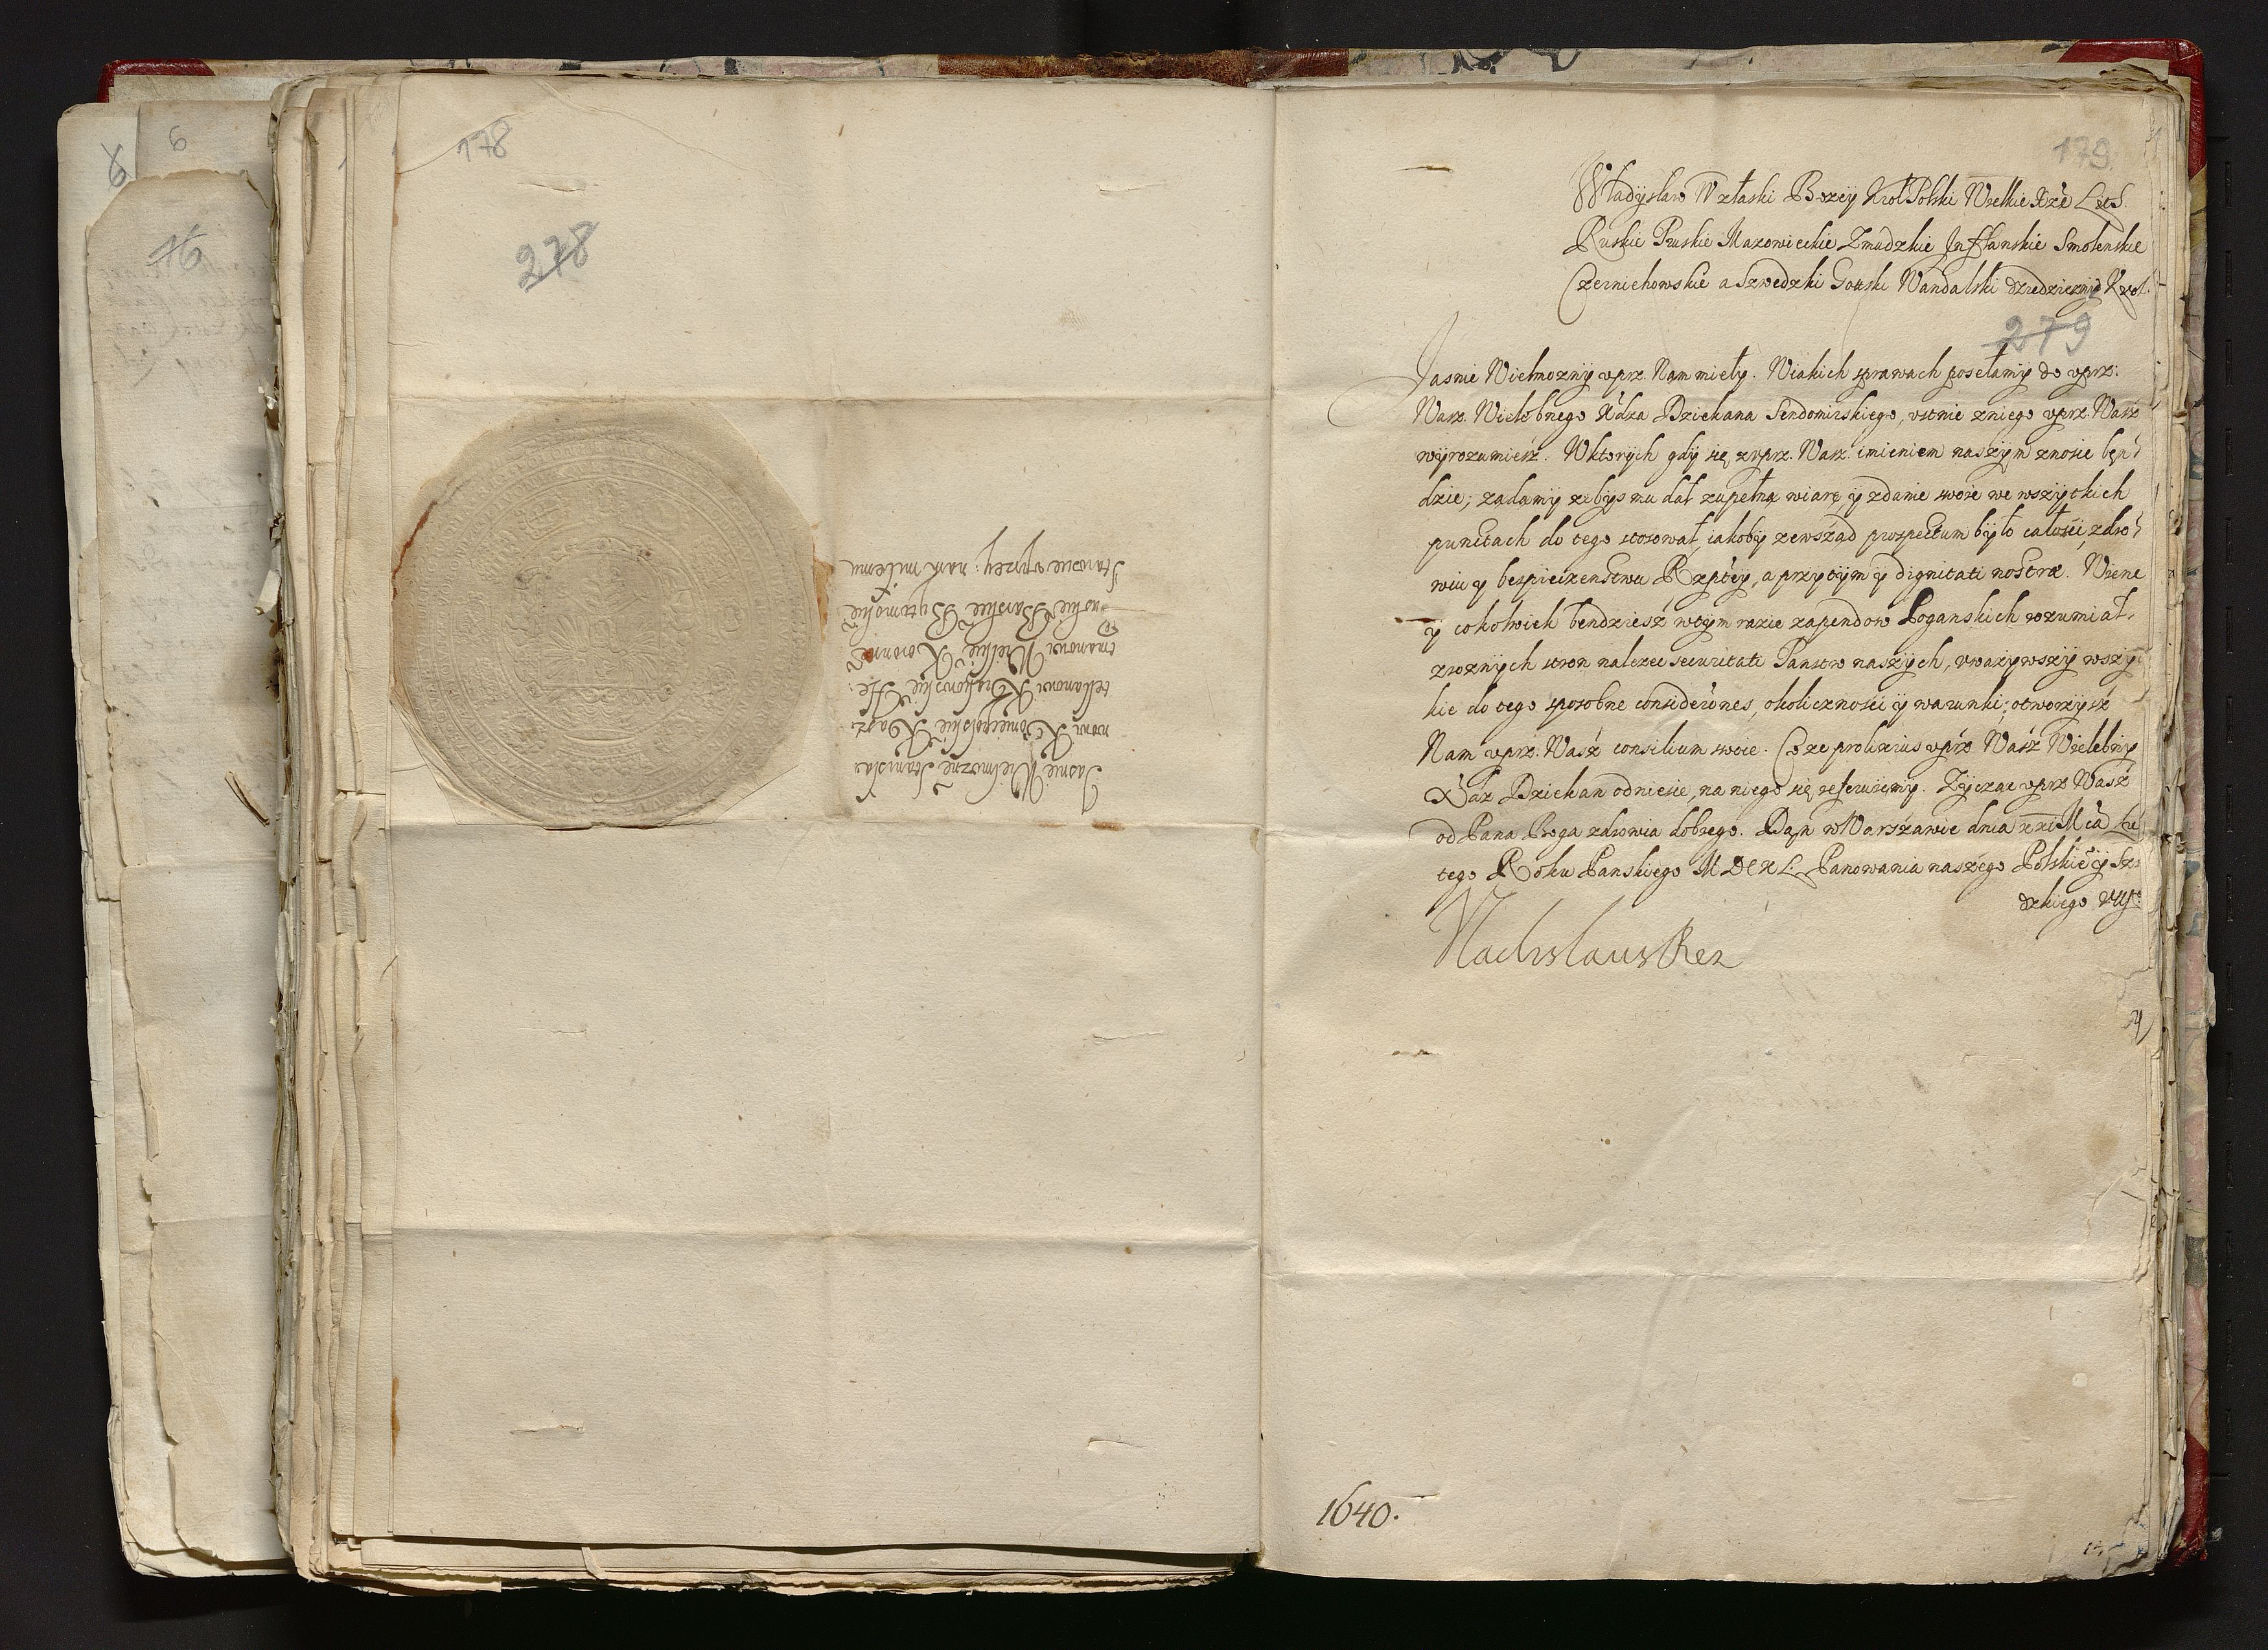 178
278
Jasnie Wielmożnẽ Stanisła-
nowi Koniecpolskiẽ Kasz-
tellanowi Krakowskiẽ He:
tmanowi Wielkiẽ Koronnẽ
Ruskiẽ Barskiẽ Bytomskiẽ
Staroscie uprzey: nam miłemu
6
6
16
179
Władysław IV z łaski Bozey Krol Polski Wielkie Xże Lits.
Ruskie Pruskie Mazowieckie Zmudzkie Inflanskie Smolenskie
Czernichowskie a Szwedzki Gotski Wandalski dziedziczny Krol.
279
Jasnie Wielmozny uprz. Nam miely. W iakich sprawach posełamy do uprz:
Warz. Wielebnego Xdza Dziekana Sendomirskiego, ustnie z niego uprz. Warz
wyrozumiesz. W ktorych gdy się z uprz. Warz. imieniem naszym znosic bęn
dzie; żądamy żebys mu dał zupełną wiarę, y zdanie swoie we wszytkich
punctach do tego stosował, iakoby zewsząd prospectum było całosci, zdro
wiu y bezpieczenstwu Rzptey, a przytym y dignitati nostræ. W cene
y cokolwiek bendziesz w tym razie zapendow Poganskich rozumiał,
z roznych stron nalezec securitati Panstw naszych, uwazywszy wszyt
kie do tego sposobne consideraones, okolicznosci y warunki; otworzysz
Nam uprz. Wasz consilium swoie. Co że prolixius uprz Wasz Wielebny
Xdz Dziekan odniesie, na niego się referuiemy. Zycząc uprz Wasz
od Pana Boga zdrowia dobrego. Dan w Warszawie dnia xxi Mca Lu
tego Roku Panskiego MDCXL Panowania naszego Polskiẽ y Sz
dzkiego VIIIº
Vladislaus Rex
1640.